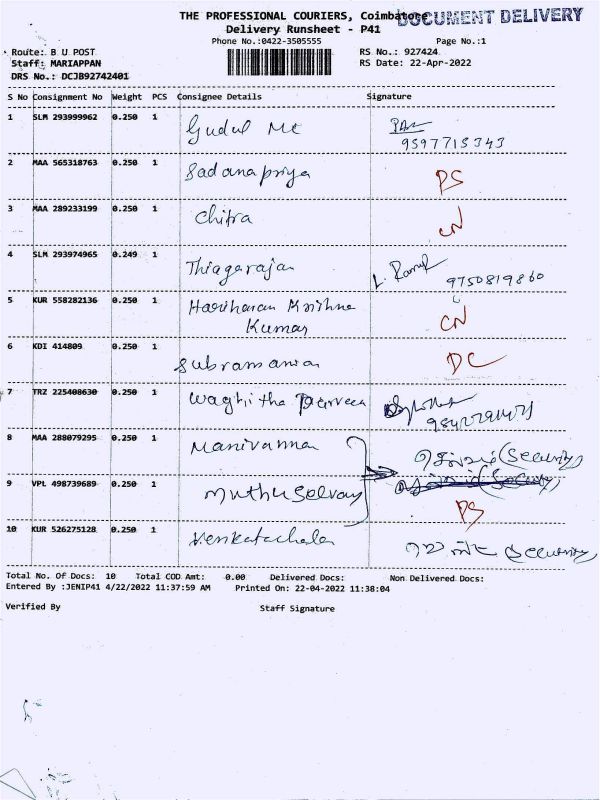 THE PROFESSIONAL COURIERS, Coimbatore DOCUMENT DELIVERY
Delivery Runsheet - P41
Phone No.:0422-3505555 Page No.:1
Route: B U POST RS No.: 927424
Staff: MARIAPPAN RS Date: 22-Apr-2022
DRS No.: DCJB92742401
S No Consignment No Weight PCS Consignee Details Signature
1 SLM 293999962 0.250 1 Gudul Mt
9597715343
2 MAA 565318763 0.250 1 Sadanapriya PS
3 MAA 289233199 0.250 1 Chitra CN
4 SLM 293974965 0.249 1 Thiagarajan 9750819860
5 KUR 558282136 0.250 1 Hariharan Krishna
Kumar CN
6 KDI 414809 0.250 1 Subramania DC
7 TRZ 225408630 0.250 1 Waghitha Parveen
8 MAA 288079295 0.250 1 Manivanna (Security)
9 VPL 498739689 0.250 1 Muthuselvan PS
10 KUR 526275128 0.250 1 Venkatachala Security
Total No. Of Docs: 10 Total COD Amt: 0.00 Delivered Docs: Non Delivered Docs:
Entered By :JENIP41 4/22/2022 11:37:59 AM Printed On: 22-04-2022 11:38:04
Verified By Staff Signature